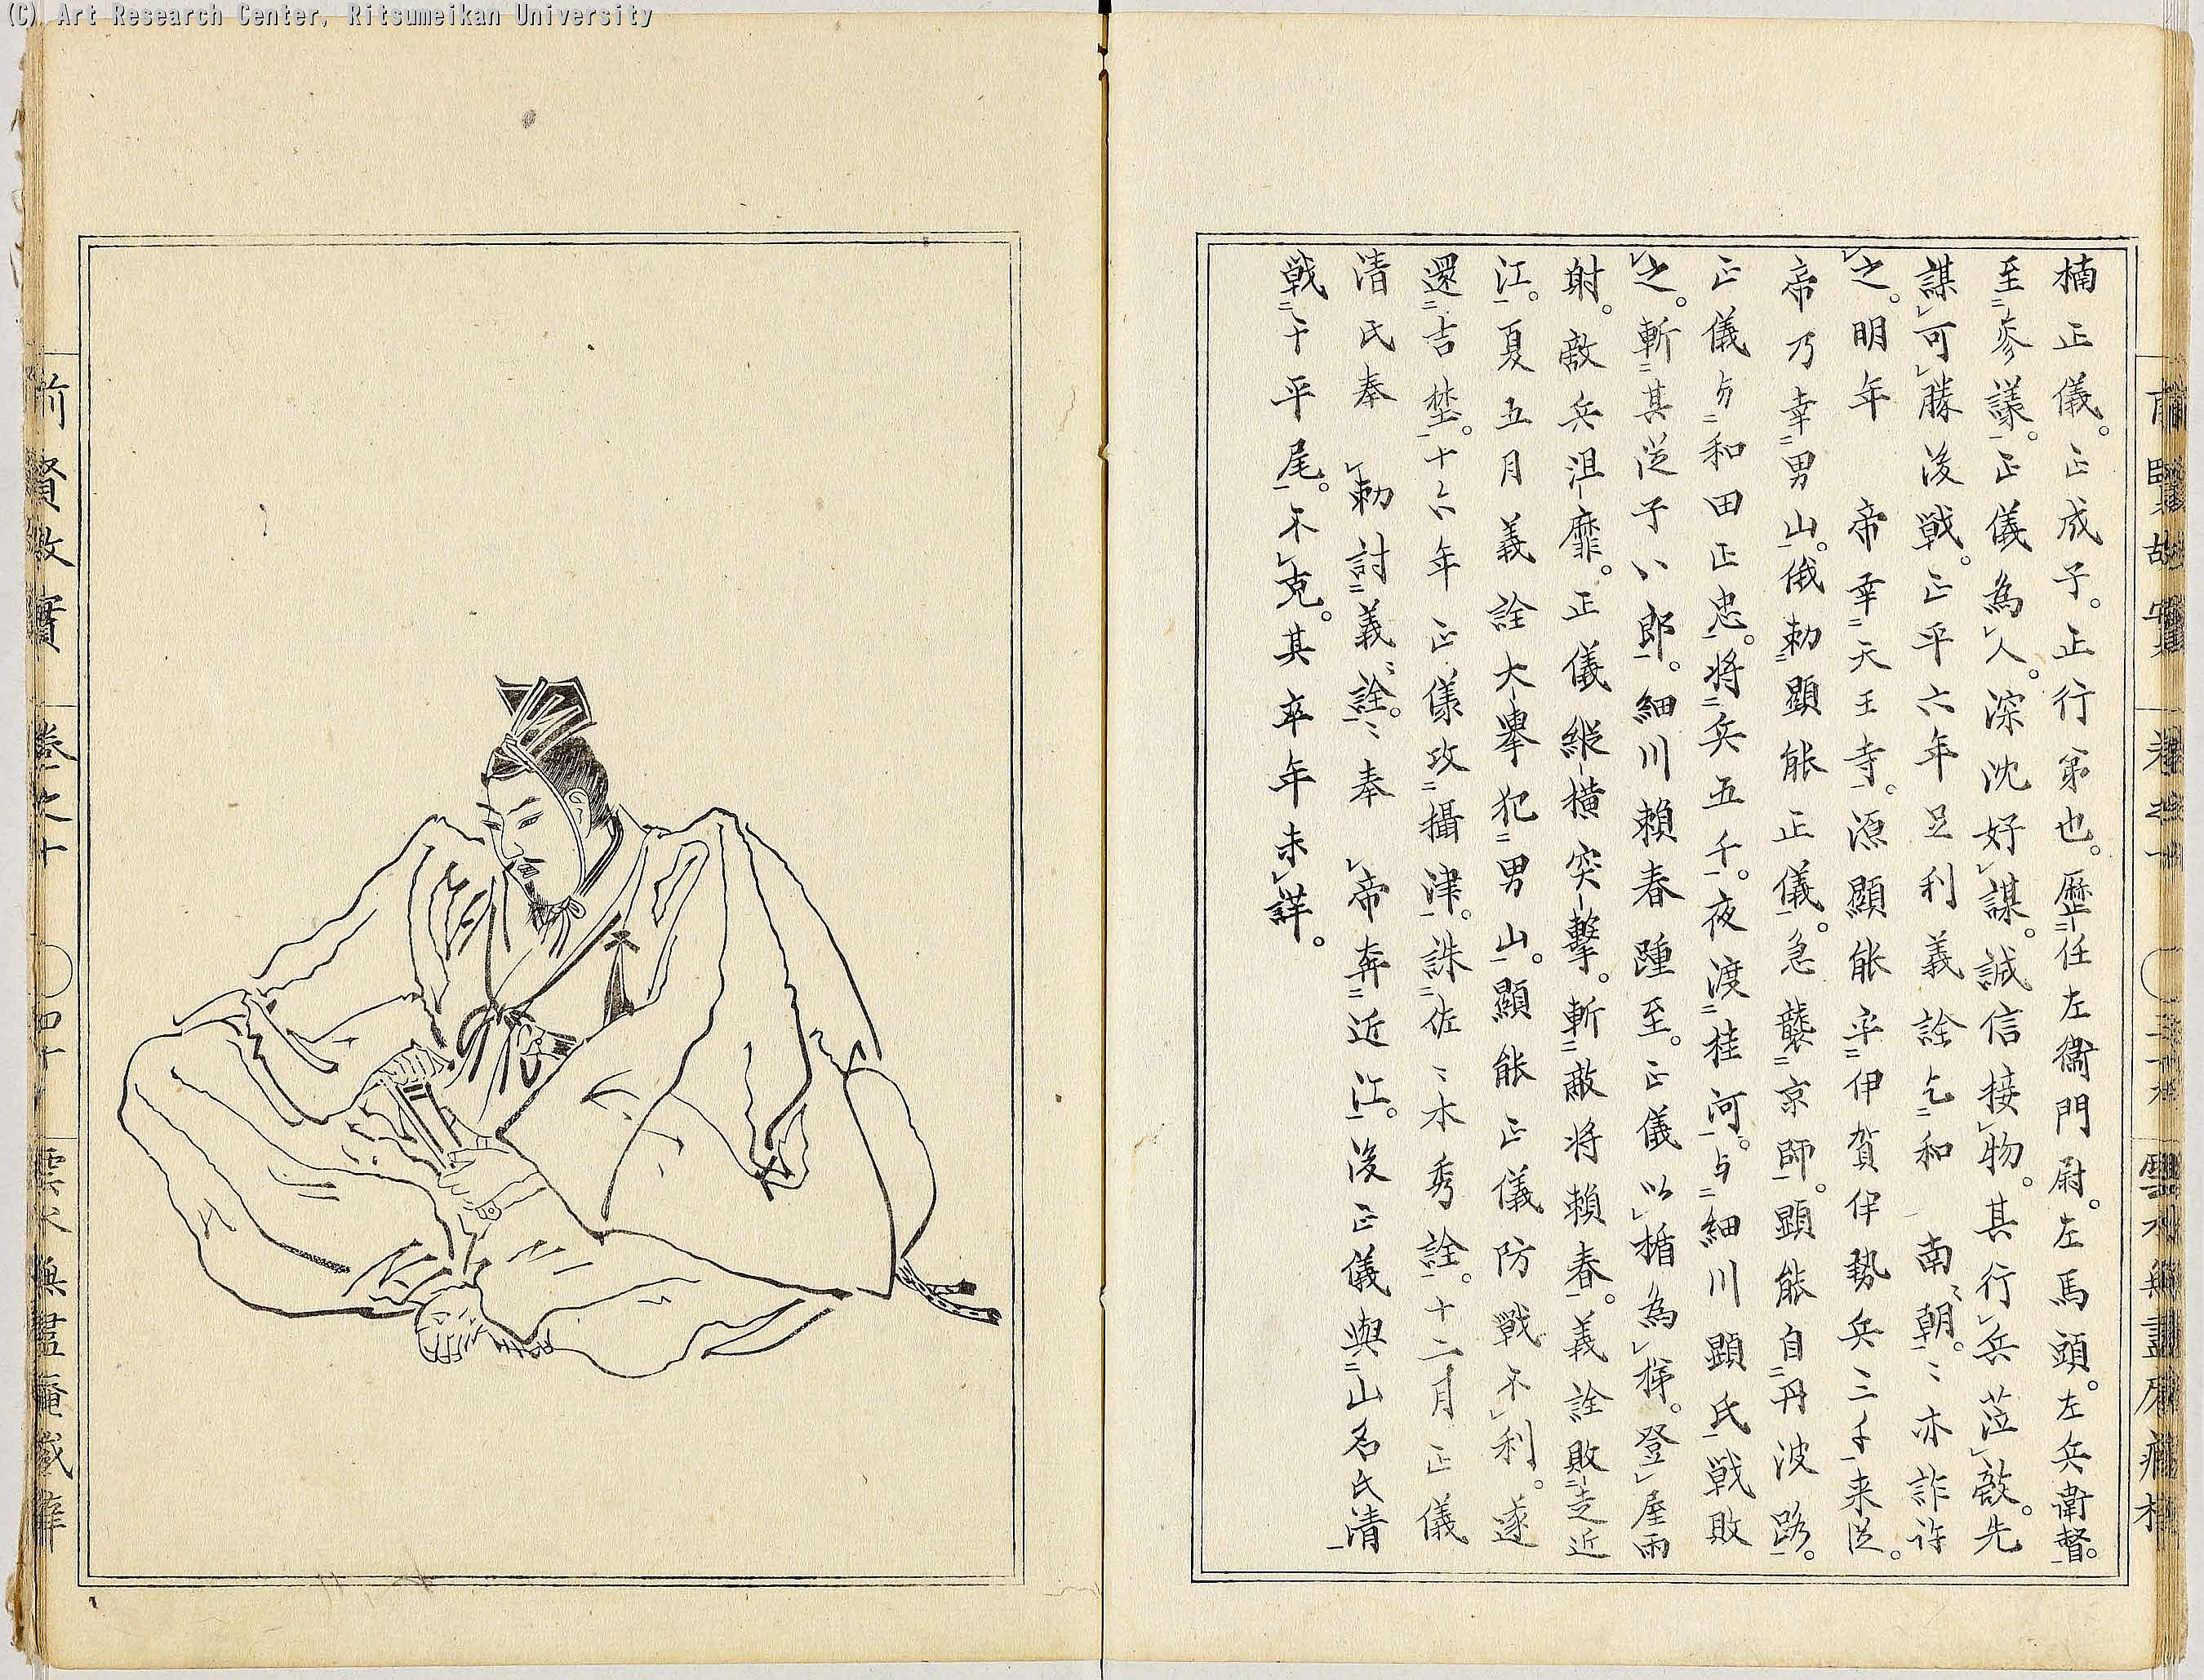 (C) Art Research Center, Ritsumeikan University
楠正儀。正成子。正行第也。歴任左衞門尉。左馬頭。左兵衞督。
至參議。正儀為人。深沈好謀。誠信接物。其行兵莅敵。先
謀可勝後戦。正平六年足利義詮乞和 南朝。〻亦詐許
之。明年 帝幸天王寺。源顯能率伊賀伊勢兵三千来従。
帝乃幸男山。俄勅顯能正儀。急襲京師。顕能自丹波路。
正儀与和田正忠。将兵五千。夜渡桂河。与細川顕氏戦敗
之。斬其従子八郎。細川頼春踵至。正儀以楯為梯。登屋雨
射。敵兵沮靡。正儀縦横突撃。斬敵将頼春。義詮敗走近
江。夏五月義詮大擧犯男山。顯能正儀防戦不利。遂
還吉埜。十六年正儀攻攝津。誅佐〻木秀詮。十二月正儀
清氏奉 勅討義詮。〻奉 帝奔近江。後正儀與山名氏清
戦于平尾。不克。其卒年未詳。
前賢故實 巻之十
雲水無盡庵藏梓